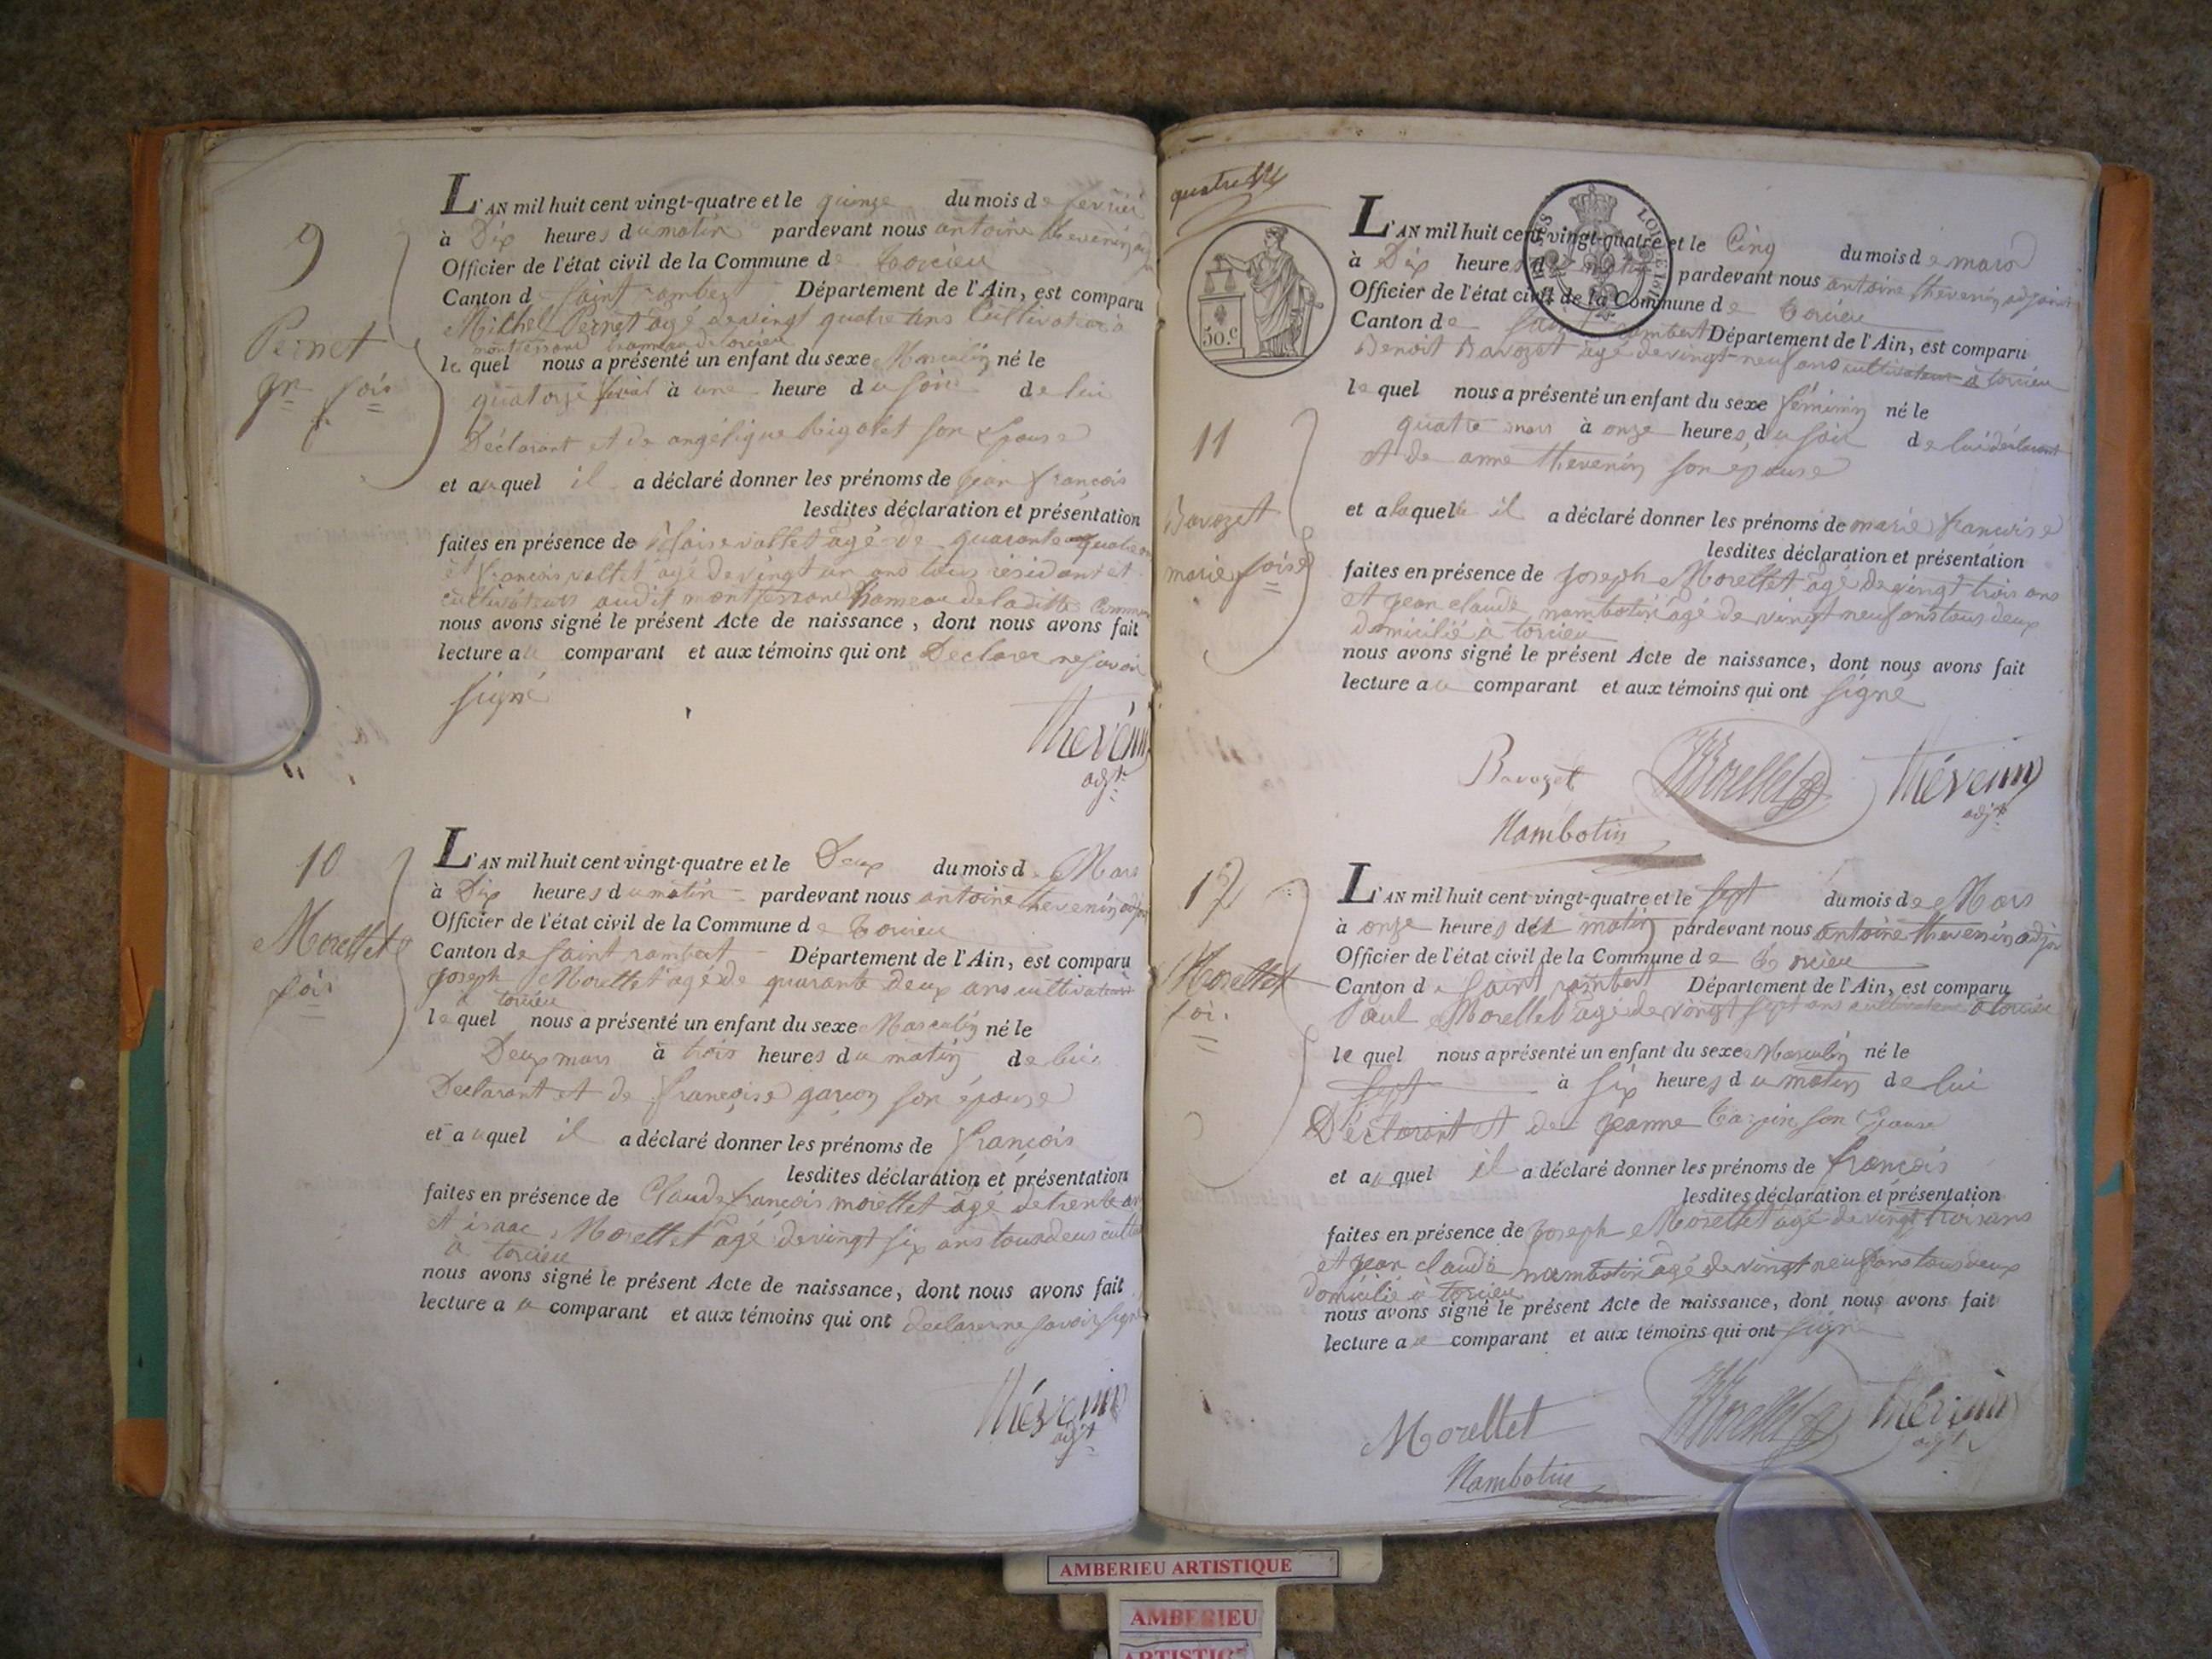 9
Pernet
jn fois
L'AN mil huit cent vingt-quatre et le quinze du mois de fevrier
à Dix heures du matin pardevant nous antoine thevenin adj
Officier de l'état civil de la Commune de torcieu
Canton de Saint rambert Département de l'Ain, est comparu
Michel Pernet agé de vingt quatre ans Cultivateur à
montferrand hameau de torcieu
le quel nous a présenté un enfant du sexe Masculin né le
quatorze à une heure du soir de lui
Déclarant et de angélique son Epouse
et au quel il a déclaré donner les prénoms de jean françois
lesdites déclaration et présentation
faites en présence de blaise vallet agé de quarante quatre ans
et françois vallet agé de vingt un ans tous résidant et
cultivateurs audit montferrand hameau de laditte Commune
nous avons signé le présent Acte de naissance, dont nous avons fait
lecture au comparant et aux témoins qui ont Declarer ne savoir
signé
Thévenin
adjt
10
Morellet
fois
L'AN mil huit cent vingt-quatre et le Deux du mois de Mars
à Dix heures du matin pardevant nous antoine thevenin adjoint
Officier de l'état civil de la Commune de torcieu
Canton de Saint rambert Département de l'Ain, est comparu
joseph Morellet agé de quarante deux ans cultivateur
à torcieu
le quel nous a présenté un enfant du sexe Masculin né le
Deux mars à trois heures du matin de lui
Declarant et de françoise garcon son épouse
et au quel il a déclaré donner les prénoms de françois
lesdites déclaration et présentation
faites en présence de Claude françois morellet agé de trente ans
et isaac Morellet agé de vingt six ans tous deux cult
à torcieu
nous avons signé le présent Acte de naissance, dont nous avons fait
lecture au comparant et aux témoins qui ont declarer ne savoir signé
Thévenin
adjt
quatre
50.c
LOUIS
11
Bavozet
marie foise
L'AN mil huit cent vingt-quatre et le Cinq du mois de mars
à Dix heures du matin pardevant nous antoine thevenin adjoint
Officier de l'état civil de la Commune de torcieu
Canton de Saint rambert Département de l'Ain, est comparu
Benoit Bavozet agé de vingt-neuf ans cultivateur à torcieu
le quel nous a présenté un enfant du sexe féminin né le
quatre mars à onze heures du soir de lui déclarant
et de anne thevenin son epouse
et a laquelle il a déclaré donner les prénoms de marie francoise
lesdites déclaration et présentation
faites en présence de joseph Morellet agé de vingt trois ans
et jean claude nambotin agé de vingt neuf ans tous deux
domicilié à torcieu
nous avons signé le présent Acte de naissance, dont nous avons fait
lecture au comparant et aux témoins qui ont signé
Bavozet Morellet Thévenin
adjt
Nambotin
12
Morellet
foi.
L'AN mil huit cent vingt-quatre et le sept du mois de Mars
à onze heures du matin pardevant nous antoine thevenin adjoi
Officier de l'état civil de la Commune de torcieu
Canton de Saint rambert Département de l'Ain, est comparu
Paul Morellet agé de vingt sept ans cultivateur a torcieu
le quel nous a présenté un enfant du sexe Masculin né le
sept à six heures du matin de lui
Déclarant et de jeanne son Epouse
et au quel il a déclaré donner les prénoms de françois
lesdites déclaration et présentation
faites en présence de joseph Morellet agé de vingt trois ans
et jean claude nambotin agé de vingt neuf ans tous deux
domicilié à torcieu
nous avons signé le présent Acte de naissance, dont nous avons fait
lecture au comparant et aux témoins qui ont signé
Morellet Morellet Thévenin
adjt
Nambotin
AMBERIEU ARTISTIQUE
AMBERIEU
ARTISTIQ